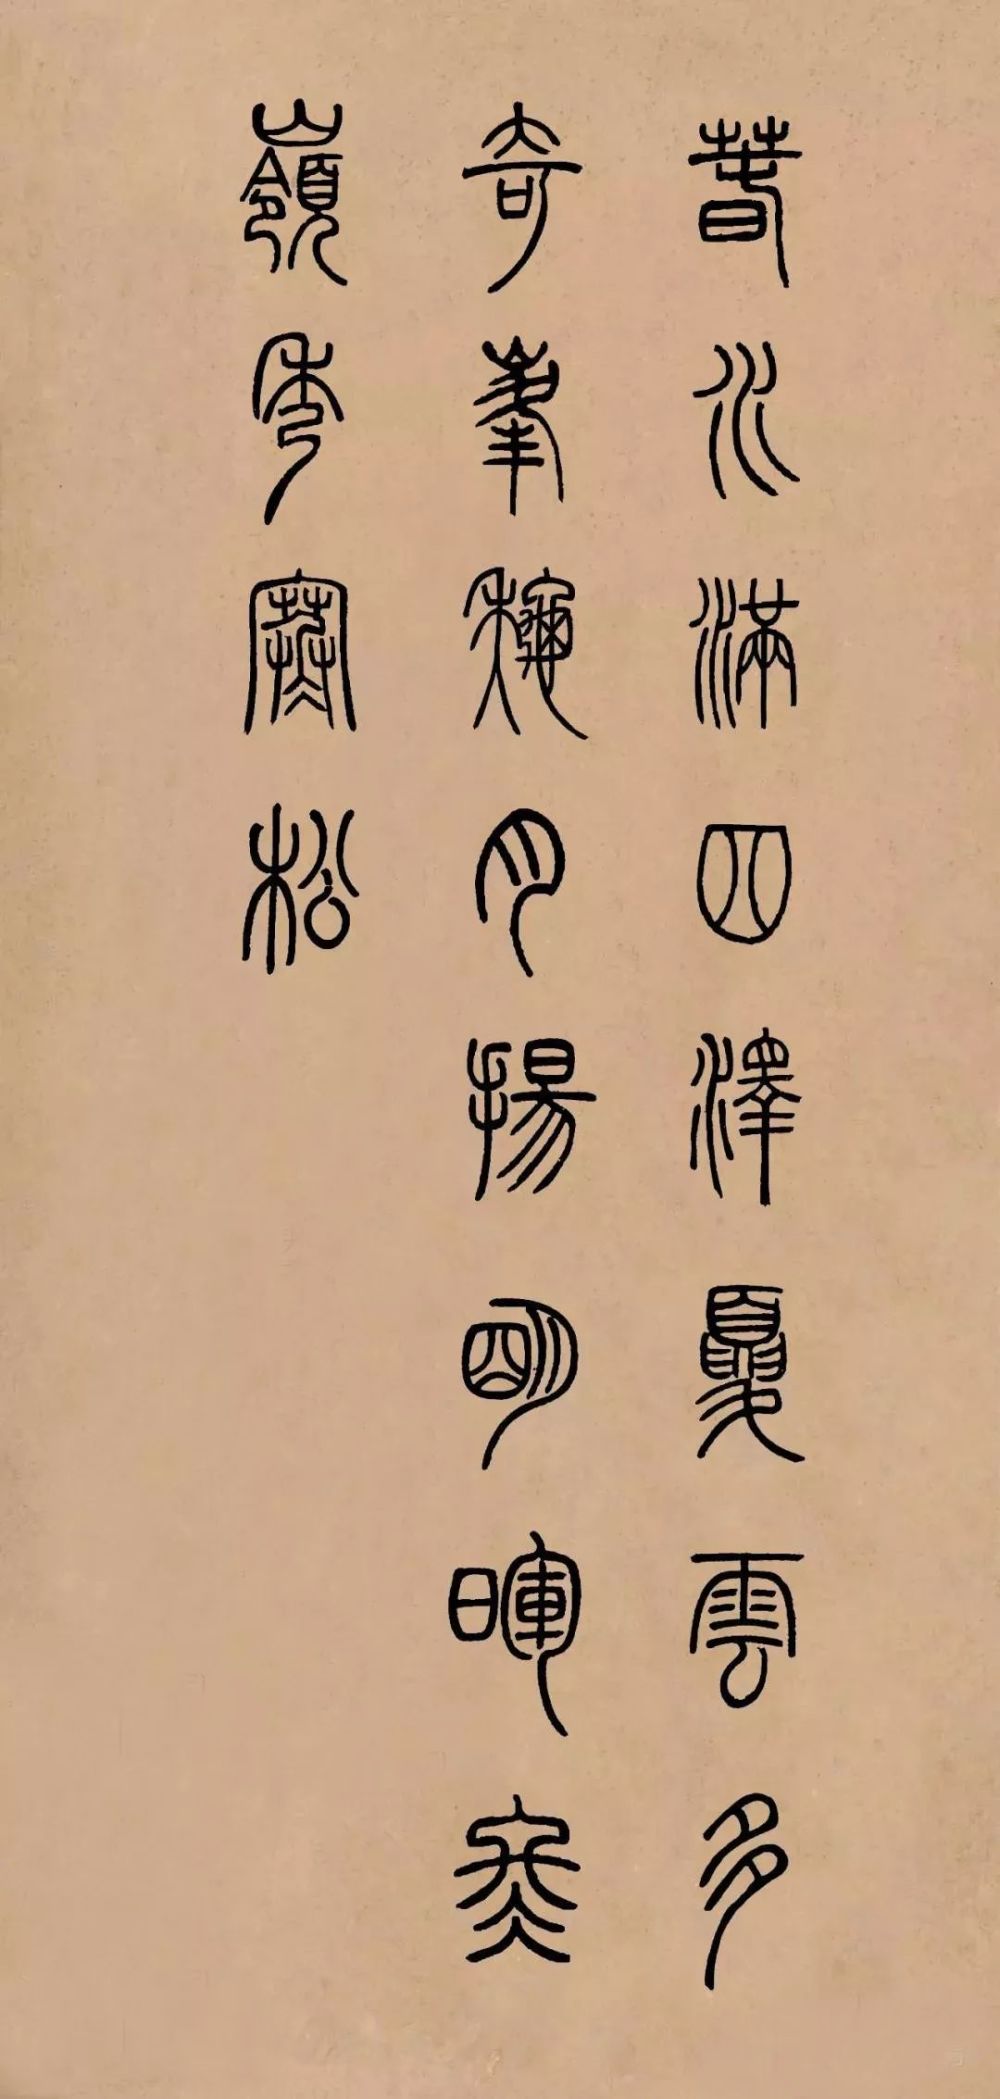 春水滿四澤夏雲多
奇峯秋月揚明暉冬
嶺秀寒松